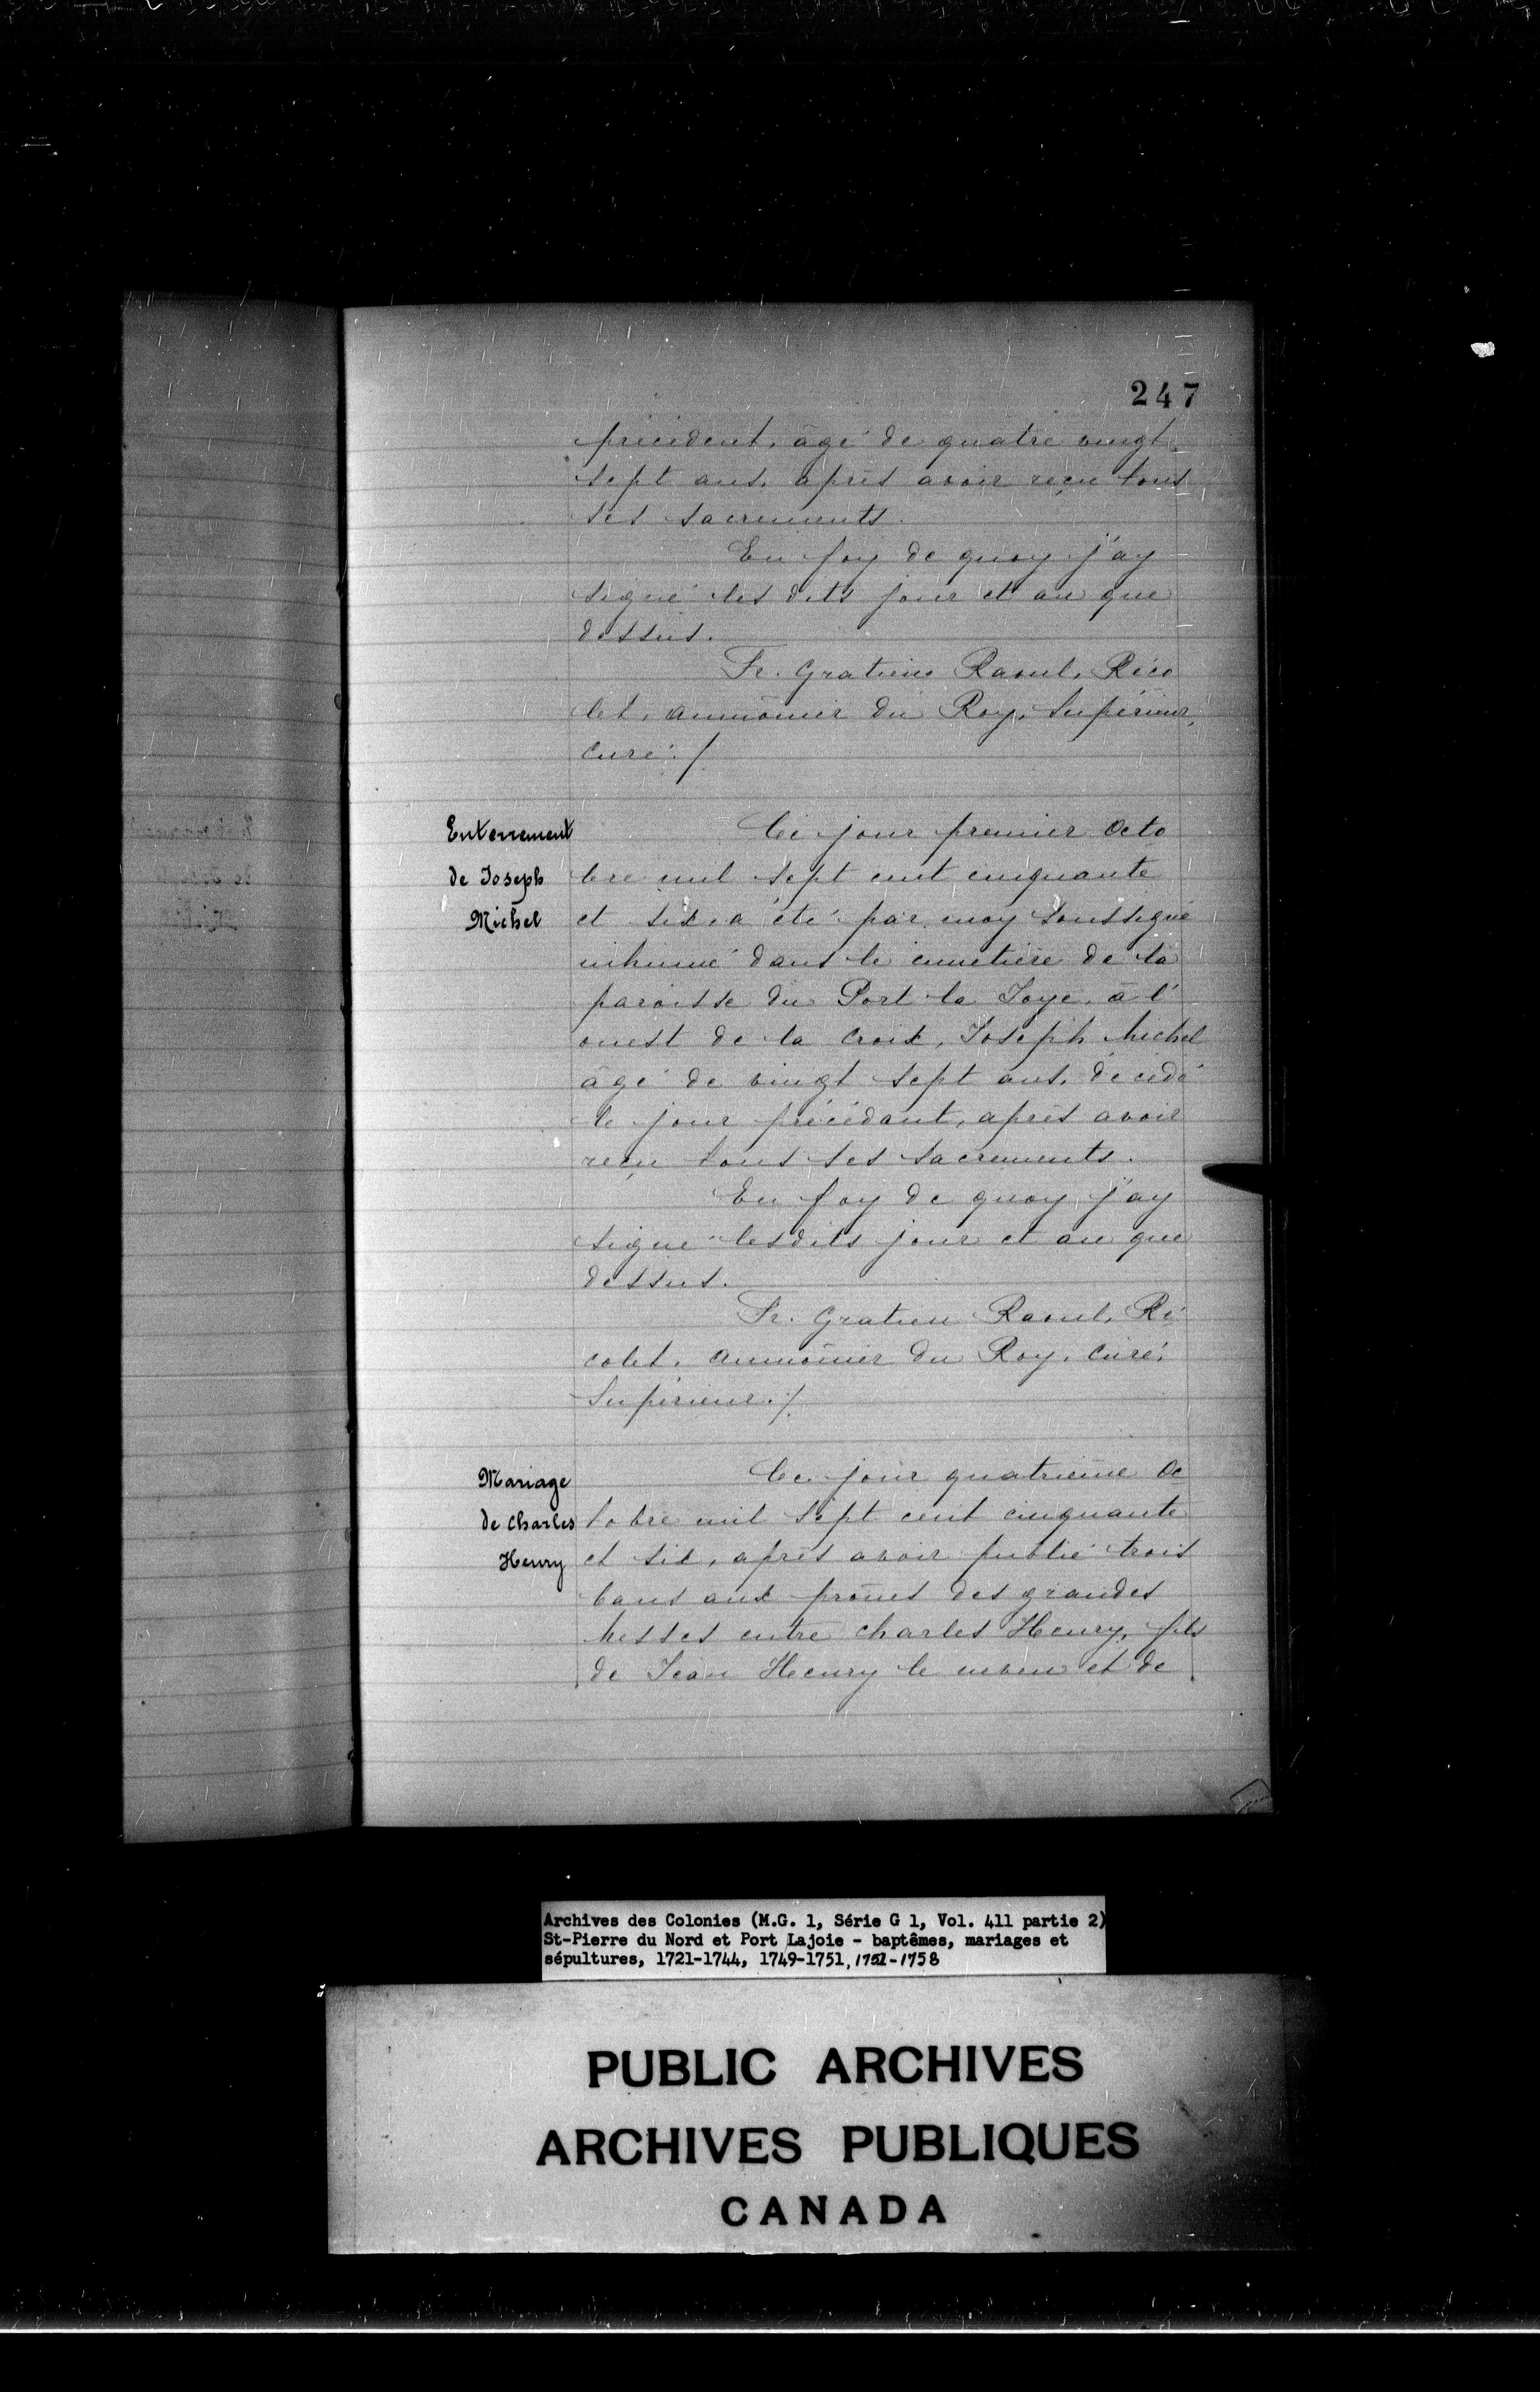 247
précédent, âgé de quatre vingt
sept ans, après avoir reçu tous
ses sacrements.
En foy de quoy j'ay
signé les dits jour et an que
dessus.
Fr. Gratien Raoul, Réco
let, aumônier du Roy, Supérieur,
curé ./.
Enterrement
de Joseph
Michel
Ce jour premier octo
bre mil sept cent cinquante
et six, a été par moy soussigné
inhumé dans le cimetière de la
paroisse du Port la Joye, à l'
ouest de la croix, Joseph Michel
âgé de vingt sept ans, décédé
le jour précédant, après avoir
reçu tous ses sacrements.
En foy de quoy j'ay
signé lesdits jour et an que
dessus.
Fr. Gratien Raoul, Ré
colet, aumônier du Roy, curé,
Supérieur ./.
Mariage
de Charles
Henry
Ce jour quatrième oc
tobre mil sept cent cinquante
et six, après avoir publié trois
bans aux prônes des grandes
Messes entre Charles Henry, fils
de Jean Henry le neveu et de
Archives des Colonies (M.G. 1, Série G 1, Vol. 411 partie 2)
St-Pierre du Nord et Port Lajoie - baptêmes, mariages et
sépultures, 1721-1744, 1749-1751, 1752-1758
PUBLIC ARCHIVES
ARCHIVES PUBLIQUES
CANADA